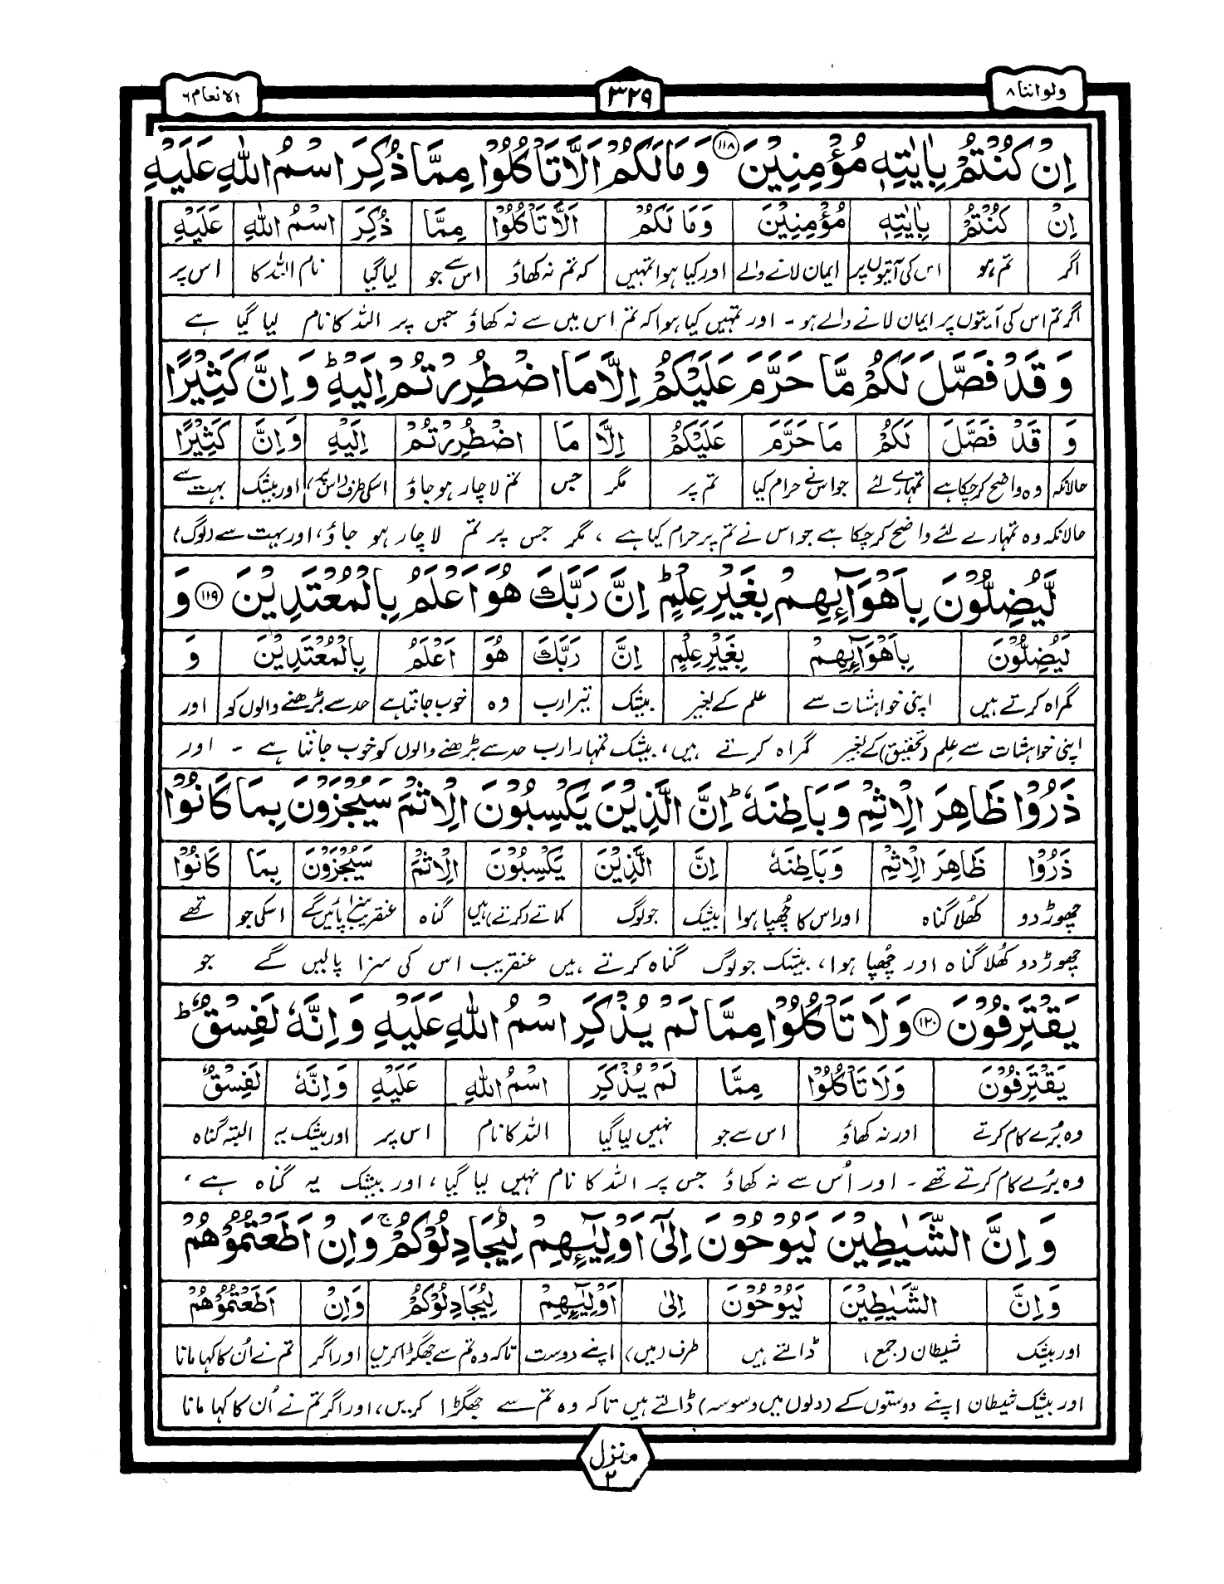 ولواننا ٨
٣٢٩
الانعام ٦
اِنْ كُنْتُمْ بِاٰيٰتِهٖ مُؤْمِنِيْنَ ۝١١٨ وَمَا لَكُمْ اَلَّا تَاْكُلُوْا مِمَّا ذُكِرَ اسْمُ اللّٰهِ عَلَيْهِ
اِنْ كُنْتُمْ بِاٰيٰتِهٖ مُؤْمِنِيْنَ وَمَا لَكُمْ اَلَّا تَاْكُلُوْا مِمَّا ذُكِرَ اسْمُ اللّٰهِ عَلَيْهِ
اگر تم ہو اس کی آیتوں پر ایمان لانے والے اور کیا ہوا تمہیں کہ تم نہ کھاؤ اس سے جو لیا گیا نام اللہ کا اس پر
اگر تم اس کی آیتوں پر ایمان لانے والے ہو ۔ اور تمہیں کیا ہوا کہ تم اس میں سے نہ کھاؤ جس پر اللہ کا نام لیا گیا ہے
وَقَدْ فَصَّلَ لَكُمْ مَّا حَرَّمَ عَلَيْكُمْ اِلَّا مَا اضْطُرِرْتُمْ اِلَيْهِ ؕ وَاِنَّ كَثِيْرًا
وَ قَدْ فَصَّلَ لَكُمْ مَا حَرَّمَ عَلَيْكُمْ اِلَّا مَا اضْطُرِرْتُمْ اِلَيْهِ وَاِنَّ كَثِيْرًا
حالانکہ وہ واضح کر چکا ہے تمہارے لئے جو اس نے حرام کیا تم پر مگر جس تم لاچار ہو جاؤ اسکی طرف (اس پر) اور بیشک بہت سے
حالانکہ وہ تمہارے لئے واضح کر چکا ہے جو اس نے تم پر حرام کیا ہے ، مگر جس پر تم لاچار ہو جاؤ، اور بہت سے (لوگ)
لَّيُضِلُّوْنَ بِاَهْوَآئِهِمْ بِغَيْرِ عِلْمٍ ؕ اِنَّ رَبَّكَ هُوَ اَعْلَمُ بِالْمُعْتَدِيْنَ ۝١١٩ وَ
لَيُضِلُّوْنَ بِاَهْوَآئِهِمْ بِغَيْرِ عِلْمٍ اِنَّ رَبَّكَ هُوَ اَعْلَمُ بِالْمُعْتَدِيْنَ وَ
گمراہ کرتے ہیں اپنی خواہشات سے علم کے بغیر بیشک تیرا رب وہ خوب جانتا ہے حد سے بڑھنے والوں کو اور
اپنی خواہشات سے علم (تحقیق) کے بغیر گمراہ کرتے ہیں، بیشک تمہارا رب حد سے بڑھنے والوں کو خوب جانتا ہے ۔ اور
ذَرُوْا ظَاهِرَ الْاِثْمِ وَبَاطِنَهٗ ؕ اِنَّ الَّذِيْنَ يَكْسِبُوْنَ الْاِثْمَ سَيُجْزَوْنَ بِمَا كَانُوْا
ذَرُوْا ظَاهِرَ الْاِثْمِ وَبَاطِنَهٗ اِنَّ الَّذِيْنَ يَكْسِبُوْنَ الْاِثْمَ سَيُجْزَوْنَ بِمَا كَانُوْا
چھوڑ دو کھلا گناہ اور اس کا چھپا ہوا بیشک جو لوگ کماتے (کرتے) ہیں گناہ عنقریب سزا پائیں گے اسکی جو تھے
چھوڑ دو کھلا گناہ اور چھپا ہوا، بیشک جو لوگ گناہ کرتے ہیں عنقریب اس کی سزا پالیں گے جو
يَقْتَرِفُوْنَ ۝١٢٠ وَلَا تَاْكُلُوْا مِمَّا لَمْ يُذْكَرِ اسْمُ اللّٰهِ عَلَيْهِ وَاِنَّهٗ لَفِسْقٌ ؕ
يَقْتَرِفُوْنَ وَلَا تَاْكُلُوْا مِمَّا لَمْ يُذْكَرِ اسْمُ اللّٰهِ عَلَيْهِ وَاِنَّهٗ لَفِسْقٌ
وہ بُرے کام کرتے اور نہ کھاؤ اس سے جو نہیں لیا گیا اللہ کا نام اس پر اور بیشک یہ البتہ گناہ
وہ بُرے کام کرتے تھے ۔ اور اُس سے نہ کھاؤ جس پر اللہ کا نام نہیں لیا گیا، اور بیشک یہ گناہ ہے ،
وَاِنَّ الشَّيٰطِيْنَ لَيُوْحُوْنَ اِلٰٓى اَوْلِيٰٓـِٕهِمْ لِيُجَادِلُوْكُمْ ۚ وَاِنْ اَطَعْتُمُوْهُمْ
وَاِنَّ الشَّيٰطِيْنَ لَيُوْحُوْنَ اِلٰى اَوْلِيٰٓـِٕهِمْ لِيُجَادِلُوْكُمْ وَاِنْ اَطَعْتُمُوْهُمْ
اور بیشک شیطان (جمع) ڈالتے ہیں طرف (میں) اپنے دوست تاکہ وہ تم سے جھگڑا کریں اور اگر تم نے اُن کا کہا مانا
اور بیشک شیطان اپنے دوستوں کے (دلوں میں وسوسہ) ڈالتے ہیں تاکہ وہ تم سے جھگڑا کریں، اور اگر تم نے اُن کا کہا مانا
منزل ٢